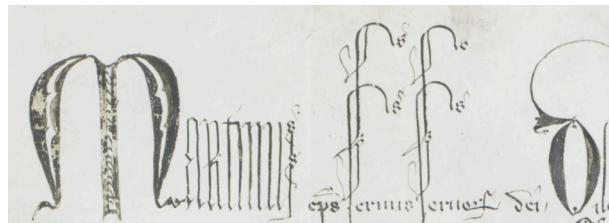 Martinus ep̅s Seruus Seruoꝝ dei